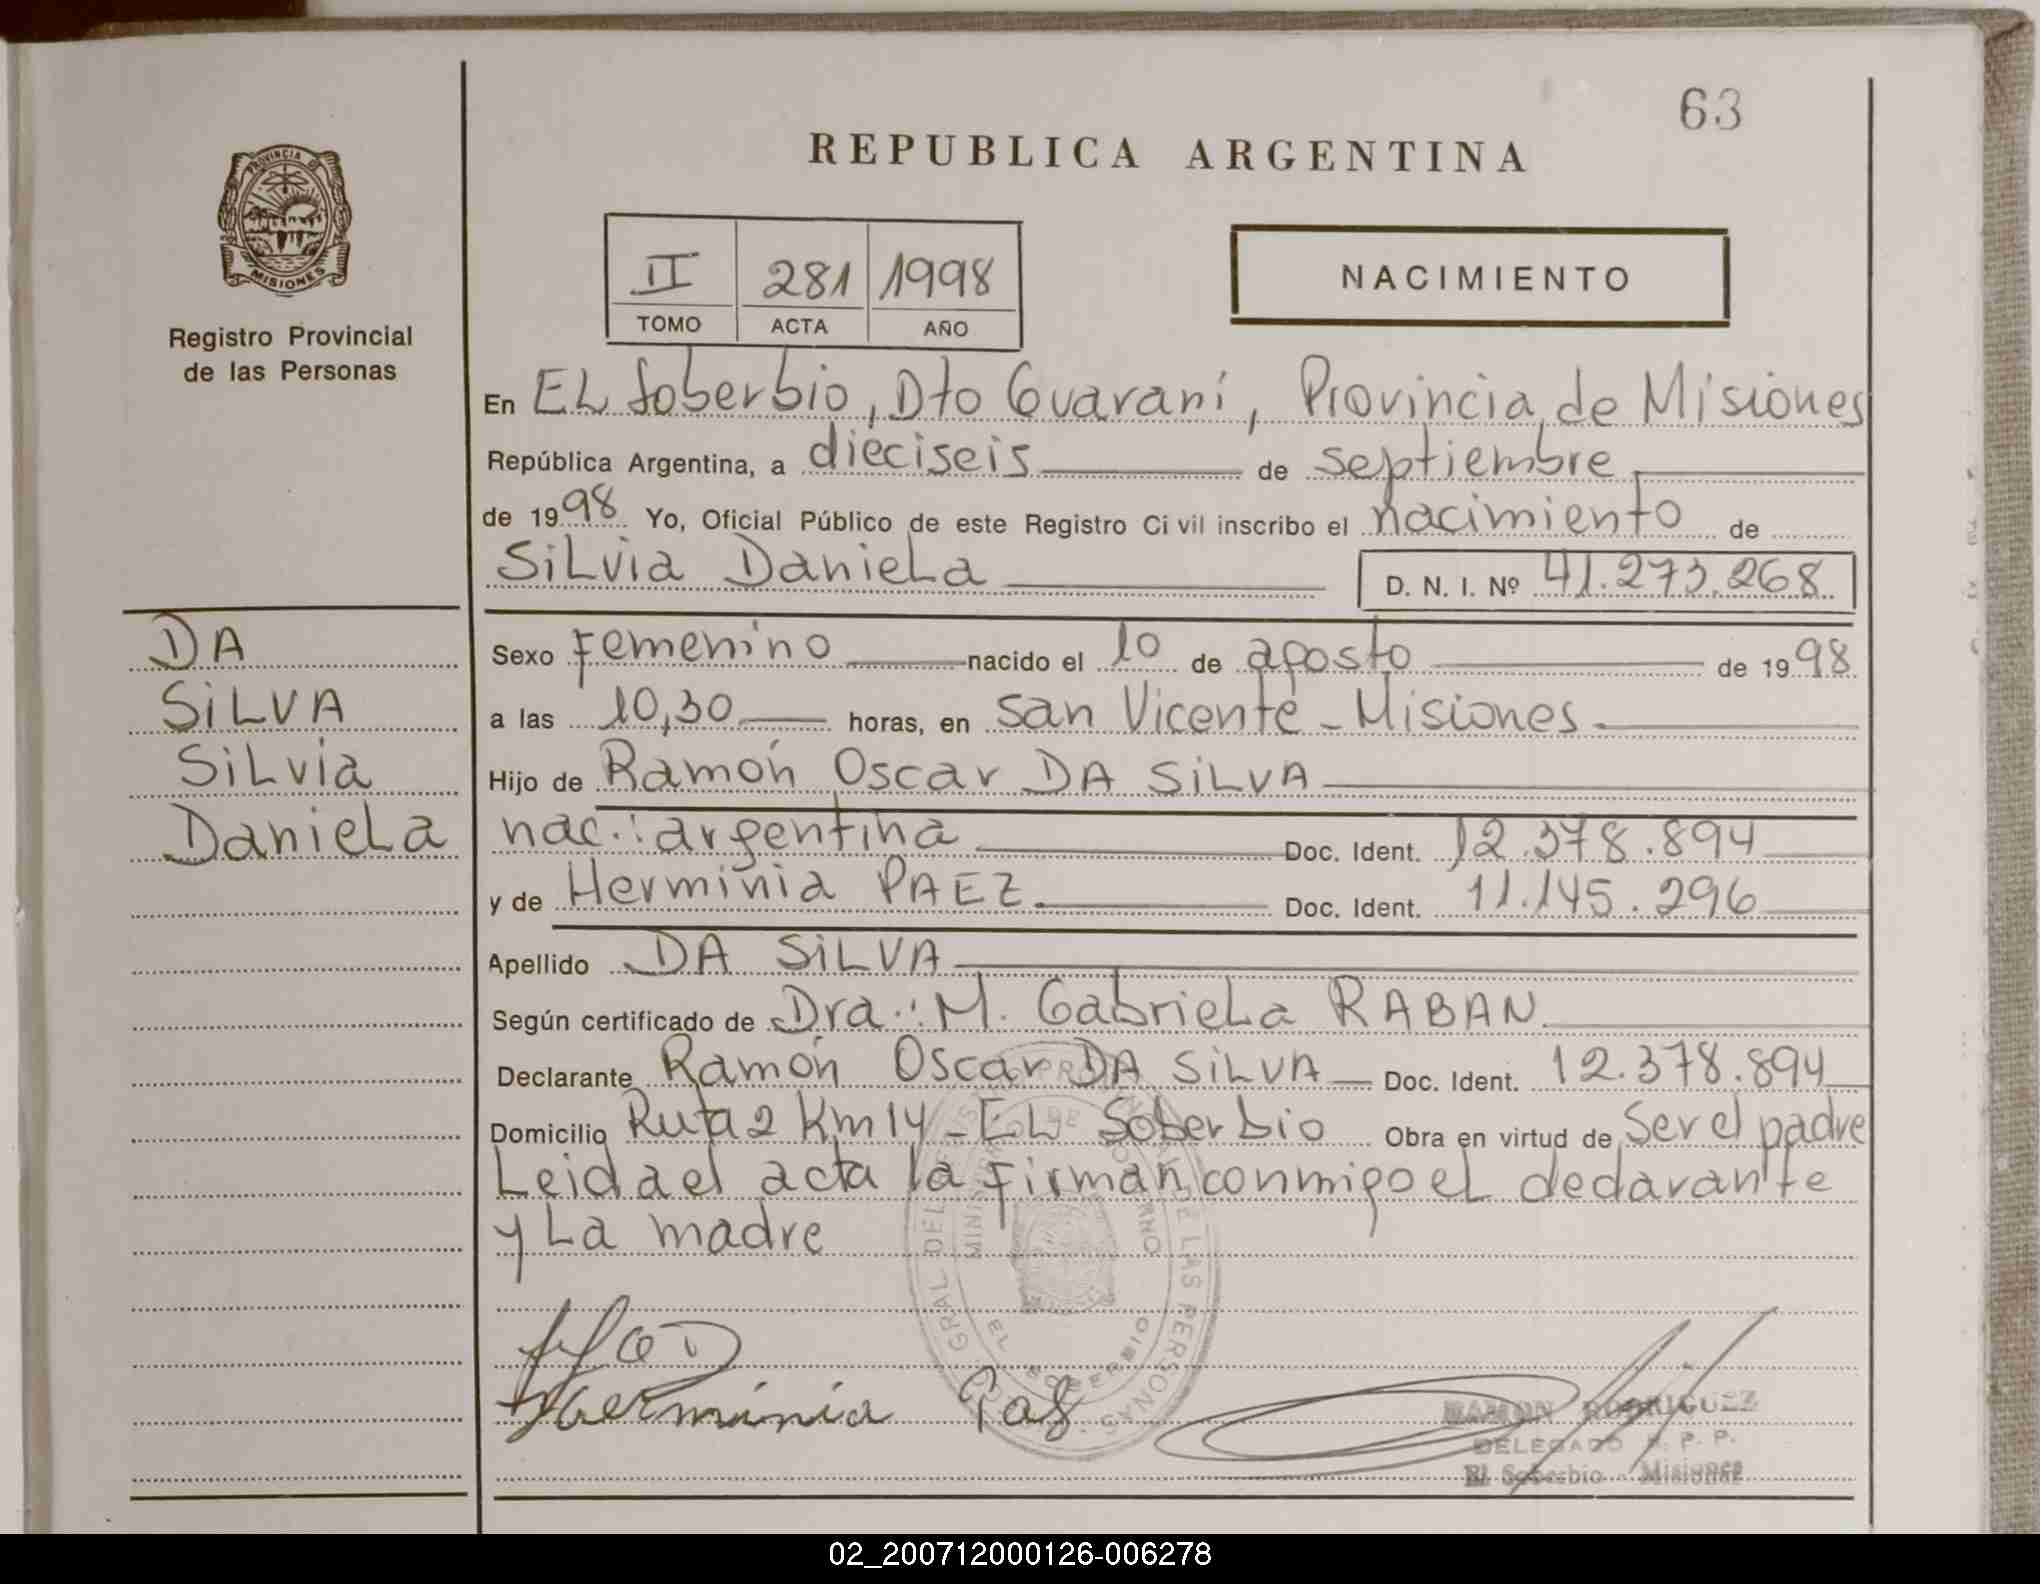 63
REPUBLICA ARGENTINA
PROVINCIA DE
MISIONES
Registro Provincial
de las Personas
II 281 1998
TOMO ACTA AÑO
NACIMIENTO
En EL Soberbio, Dto Guaraní, Provincia de Misiones
República Argentina, a dieciseis de septiembre
de 1998 Yo, Oficial Público de este Registro Civil inscribo el nacimiento de
SiLvia DanieLa D. N. I. Nº 41.273.268
DA
SiLVA
SiLvia
DanieLa
Sexo Femenino nacido el 10 de agosto de 1998
a las 10,30 horas, en San Vicente - Misiones
Hijo de Ramón Oscar DA SiLVA
nac.: argentina Doc. Ident. 12.378.894
y de Herminia PAEZ Doc. Ident. 11.145.296
Apellido DA SiLVA
Según certificado de Dra.: M. GabrieLa RABAN
Declarante Ramón Oscar DA SiLVA Doc. Ident. 12.378.894
Domicilio Ruta 2 Km 14 - EL Soberbio Obra en virtud de Ser el padre
Leida el acta la Firman conmigo eL declarante
y La madre
GRAL DEL DE LAS PERSONAS
EL SOBERBIO
Herminia
RAMON RODRIGUEZ
DELEGADO R. P. P.
El Soberbio - Misiones
02_200712000126-006278